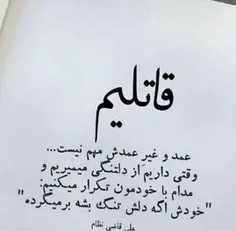 قاتلیم
عمد و غیر عمدش مهم نیست...
وقتی داریم از دلتنگی میمیریم و
مدام با خودمون تکرار میکنیم:
"خودش اگه دلش تنگ بشه برمیگرده"
علی قاضی نظام